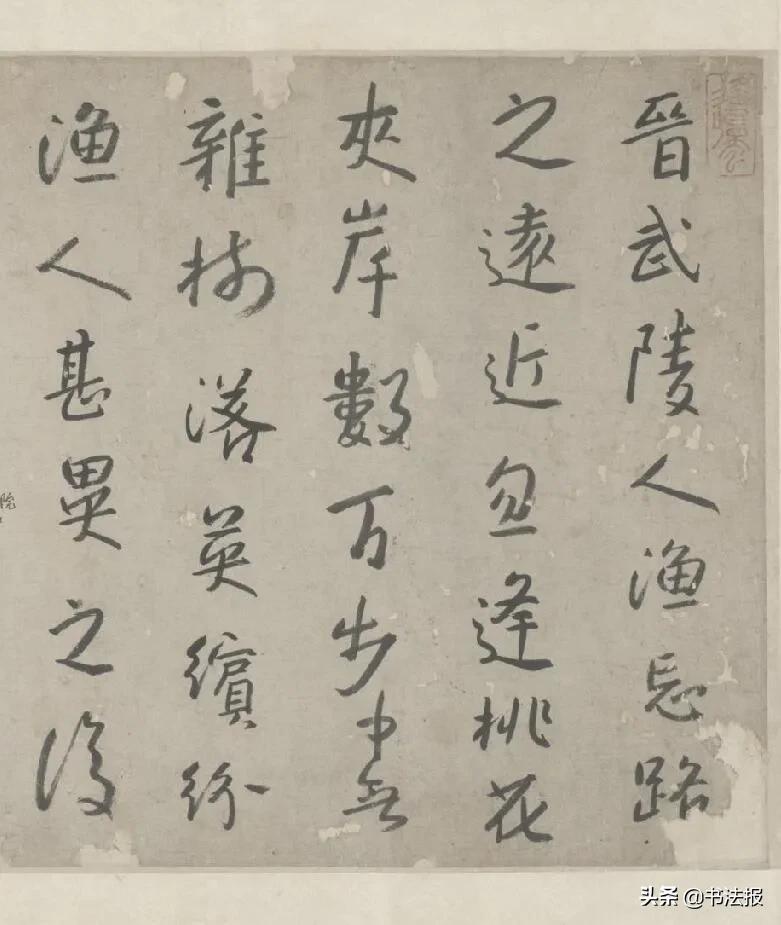 晉武陵人漁忘路
之遠近忽逢桃花
夾岸數万步中無
雜樹落英繽紛
漁人甚異之復
头条 @书法报